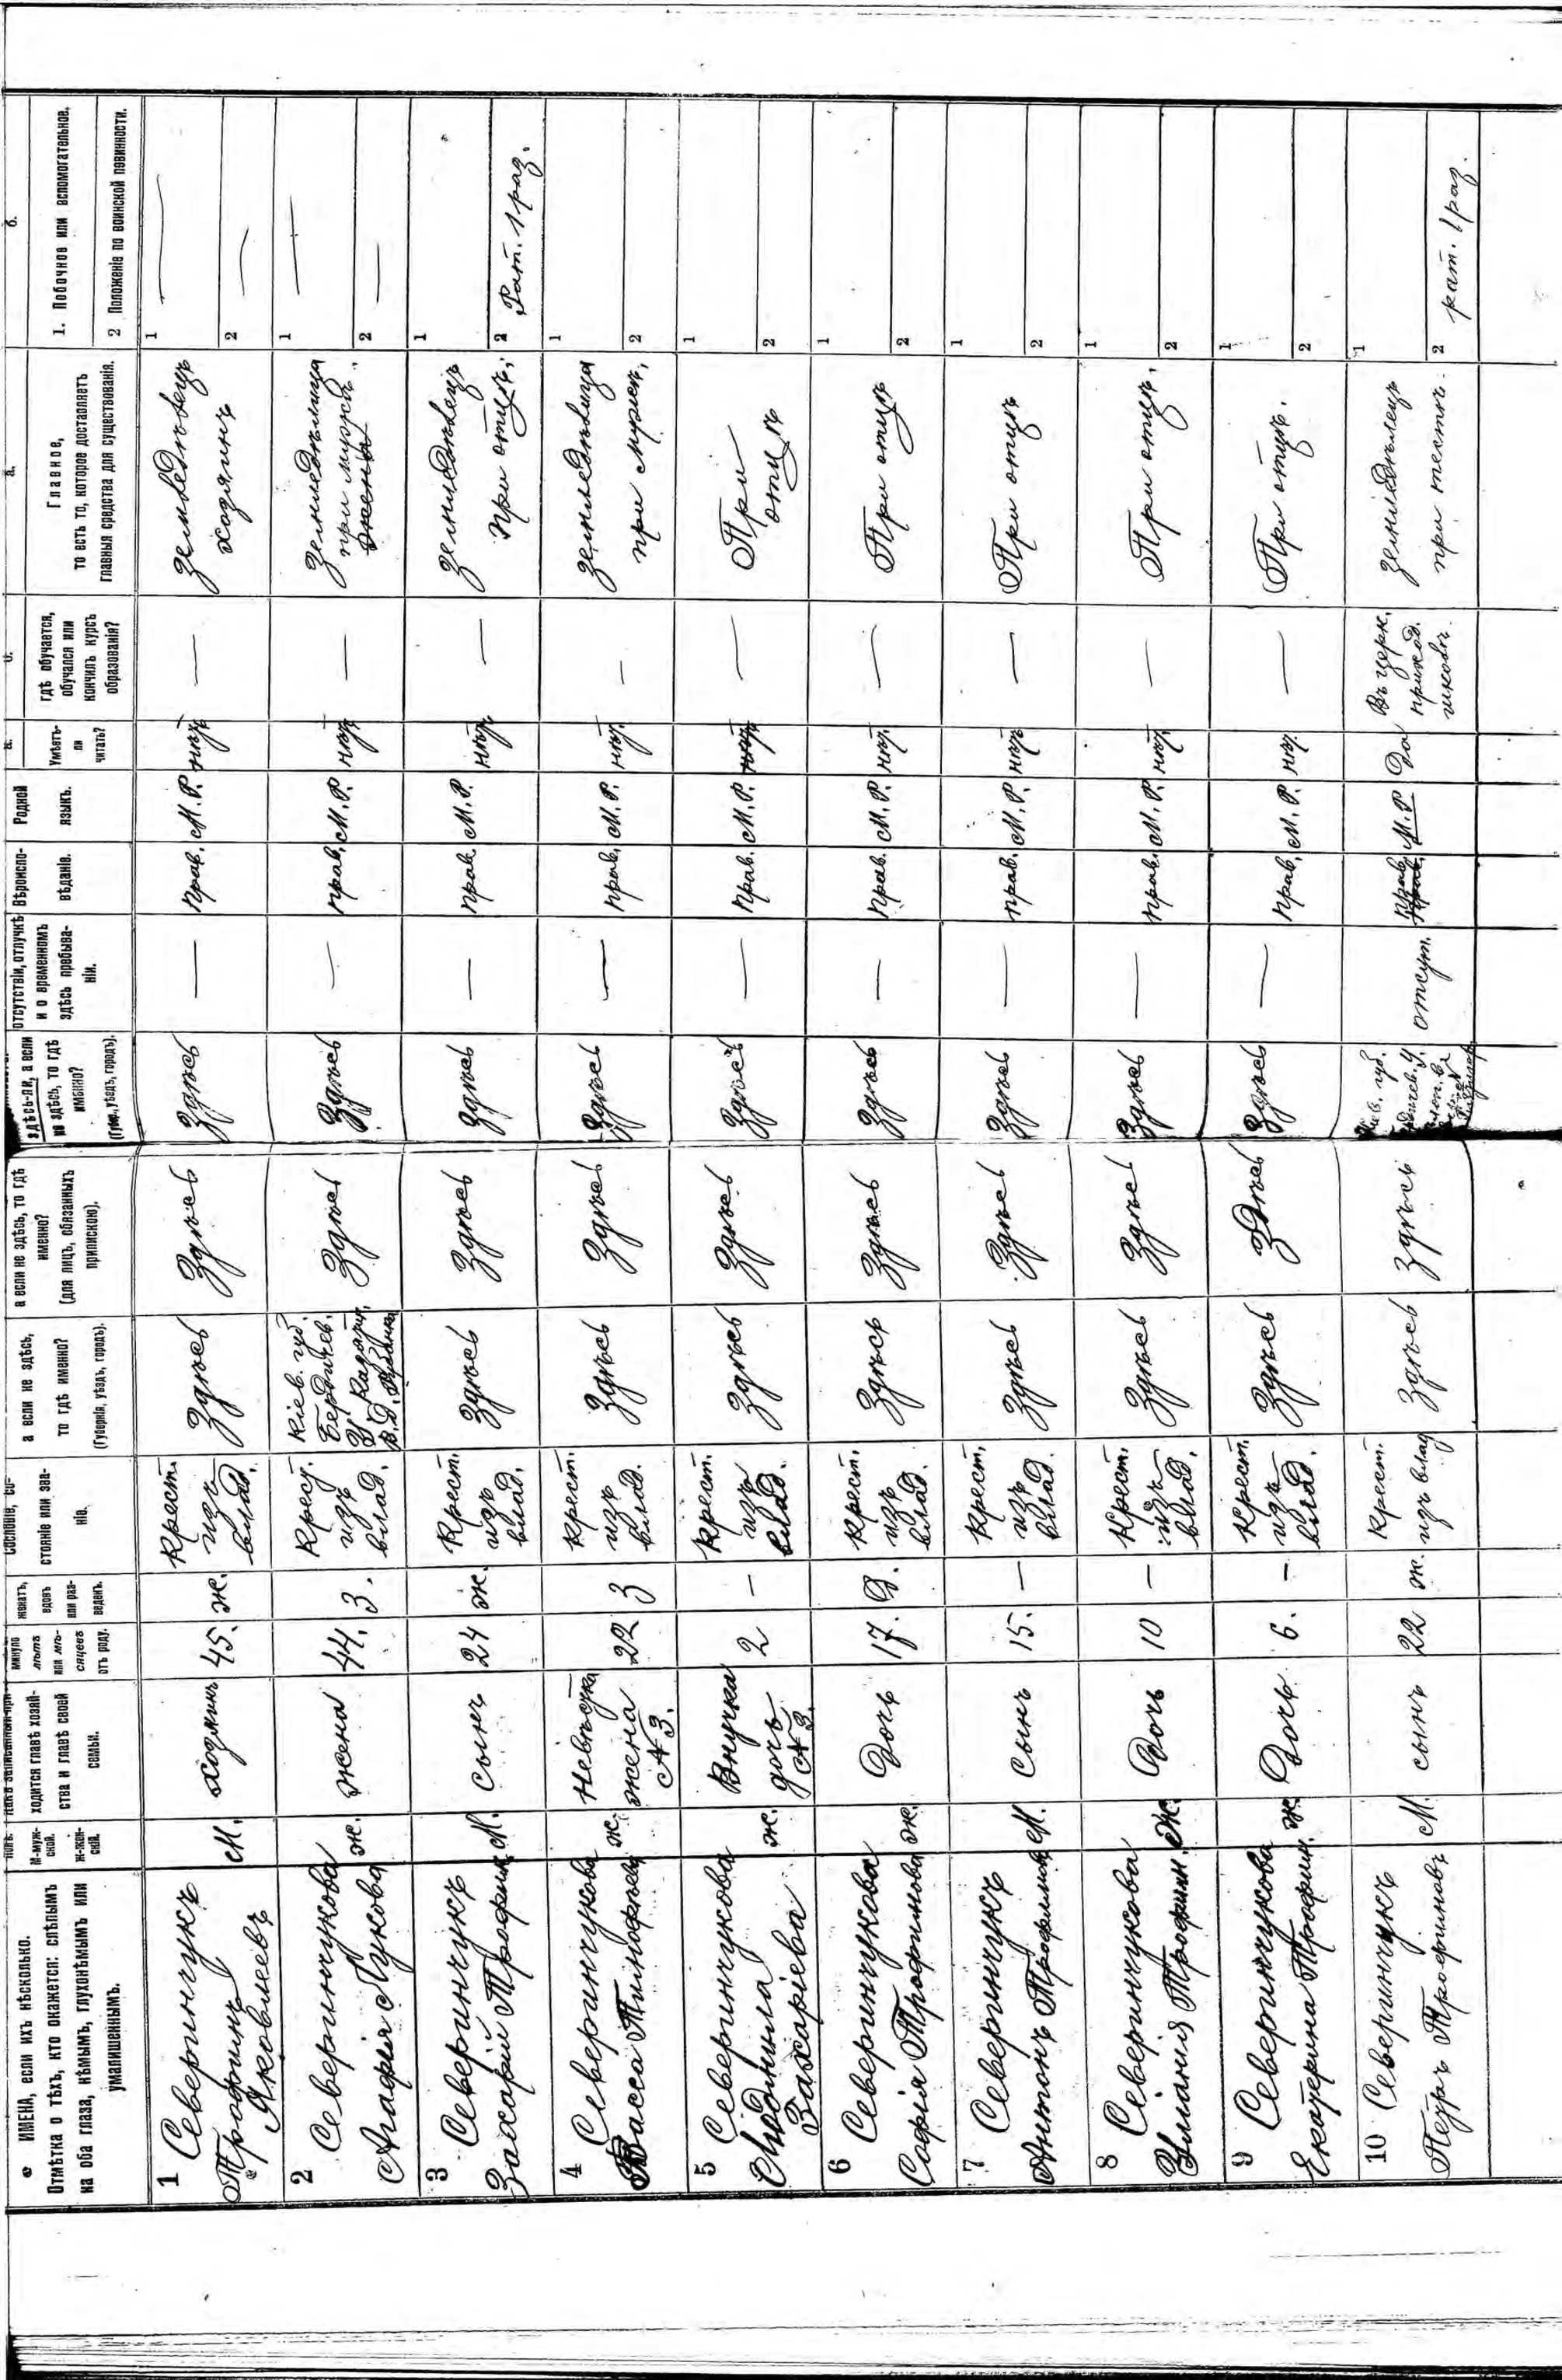 ИМЕНА, если ихъ нѣсколько.
Отмѣтка о тѣхъ, кто окажется: слѣпымъ
на оба глаза, нѣмымъ, глухонѣмымъ или
умалишеннымъ.
М-муж-
ской.
Ж-жен-
скій.
ходится главѣ хозяй-
ства и главѣ своей
семьи.
минуло
лѣтъ
или мѣ-
сяцевъ
отъ роду.
женатъ,
вдовъ
или раз-
веденъ.
Сословіе, со-
стояніе или зва-
ніе.
а если не здѣсь,
то гдѣ именно?
(Губернія, уѣздъ, городъ).
а если не здѣсь, то гдѣ
именно?
(для лицъ, обязанныхъ
припискою).
здѣсь-ли, а если
не здѣсь, то гдѣ
именно?
(Губер., уѣздъ, городъ).
отсутствіи, отлучкѣ
и о временномъ
здѣсь пребыва-
ніи.
Вѣроиспо-
вѣданіе.
Родной
языкъ.
а.
Умѣетъ-
ли
читать?
б.
гдѣ обучается,
обучался или
кончилъ курсъ
образованія?
а.
Главное,
то есть то, которое доставляетъ
главныя средства для существованія.
б.
1. Побочное или вспомогательное.
2 Положеніе по воинской повинности.
1 Северинчукъ
Трофимъ
Яковлеевъ
М.
хозяинъ
45.
ж.
Крест.
изъ
влад.
Здѣсь
Здѣсь
Здѣсь
—
прав.
М.Р.
нѣтъ
—
земледѣлецъ
хозяинъ
1 —
2 —
2 Северинчукова
Агафія Лукова
ж.
жена
44.
З.
Крест.
изъ
влад.
Кіев. губ.
Бердичев.
У. Казатин.
Здѣсь
Здѣсь
—
прав.
М.Р.
нѣтъ
—
Земледѣлица
при мужѣ.
жены
1 —
2 —
3 Северинчукъ
Захарій Трофим.
М.
сынъ
24
ж.
Крест.
изъ
влад.
Здѣсь
Здѣсь
Здѣсь
—
прав.
М.Р.
нѣтъ
—
земледѣлецъ
при отцѣ.
1
2 Рат. 1 раз.
4 Северинчукова
Васса Тимофѣева
ж.
Невѣстка
жена
№ 3.
22
З
крест.
изъ
влад.
Здѣсь
Здѣсь
Здѣсь
—
прав.
М.Р.
нѣт.
—
земледѣлица
при мужѣ.
1
2
5 Северинчукова
Захаріева
ж.
Внучка
дочь
№ 3.
2
—
крест.
изъ
влад.
Здѣсь
Здѣсь
Здѣсь
—
прав.
М.Р.
нѣт
—
При
отцѣ
1
2
6 Северинчукова
Софія Трофимова
ж.
Дочь
17.
Д.
крест.
изъ
влад.
Здѣсь
Здѣсь
Здѣсь
—
прав.
М.Р.
нѣт.
—
При отцѣ
1
2
7 Северинчукъ
Антонъ Трофимов
М.
сынъ
15.
—
крест.
изъ
влад.
Здѣсь
Здѣсь
Здѣсь
—
прав.
М.Р.
нѣт
—
При отцѣ
1
2
8 Северинчукова
Уліанія Трофим.
Ж.
Дочь
10
—
Крест.
изъ
влад.
Здѣсь
Здѣсь
Здѣсь
—
прав.
М.Р.
нѣт.
—
При отцѣ.
1
2
9 Северинчукова
Екатерина Трофим.
ж.
Дочь
6.
—
Крест.
изъ
влад.
Здѣсь
Здѣсь
Здѣсь
—
прав.
М.Р.
нѣт.
—
При отцѣ.
1
2
10 Северинчукъ
Петръ Трофимовъ
М.
сынъ
22
ж.
крест.
изъ влад
Здѣсь
Здѣсь
Кіев. губ.
отсут.
прав.
М.Р
Да
Въ церк.
приход.
школѣ.
земледѣлецъ
при тестѣ.
1
2 рат. 1 раз.